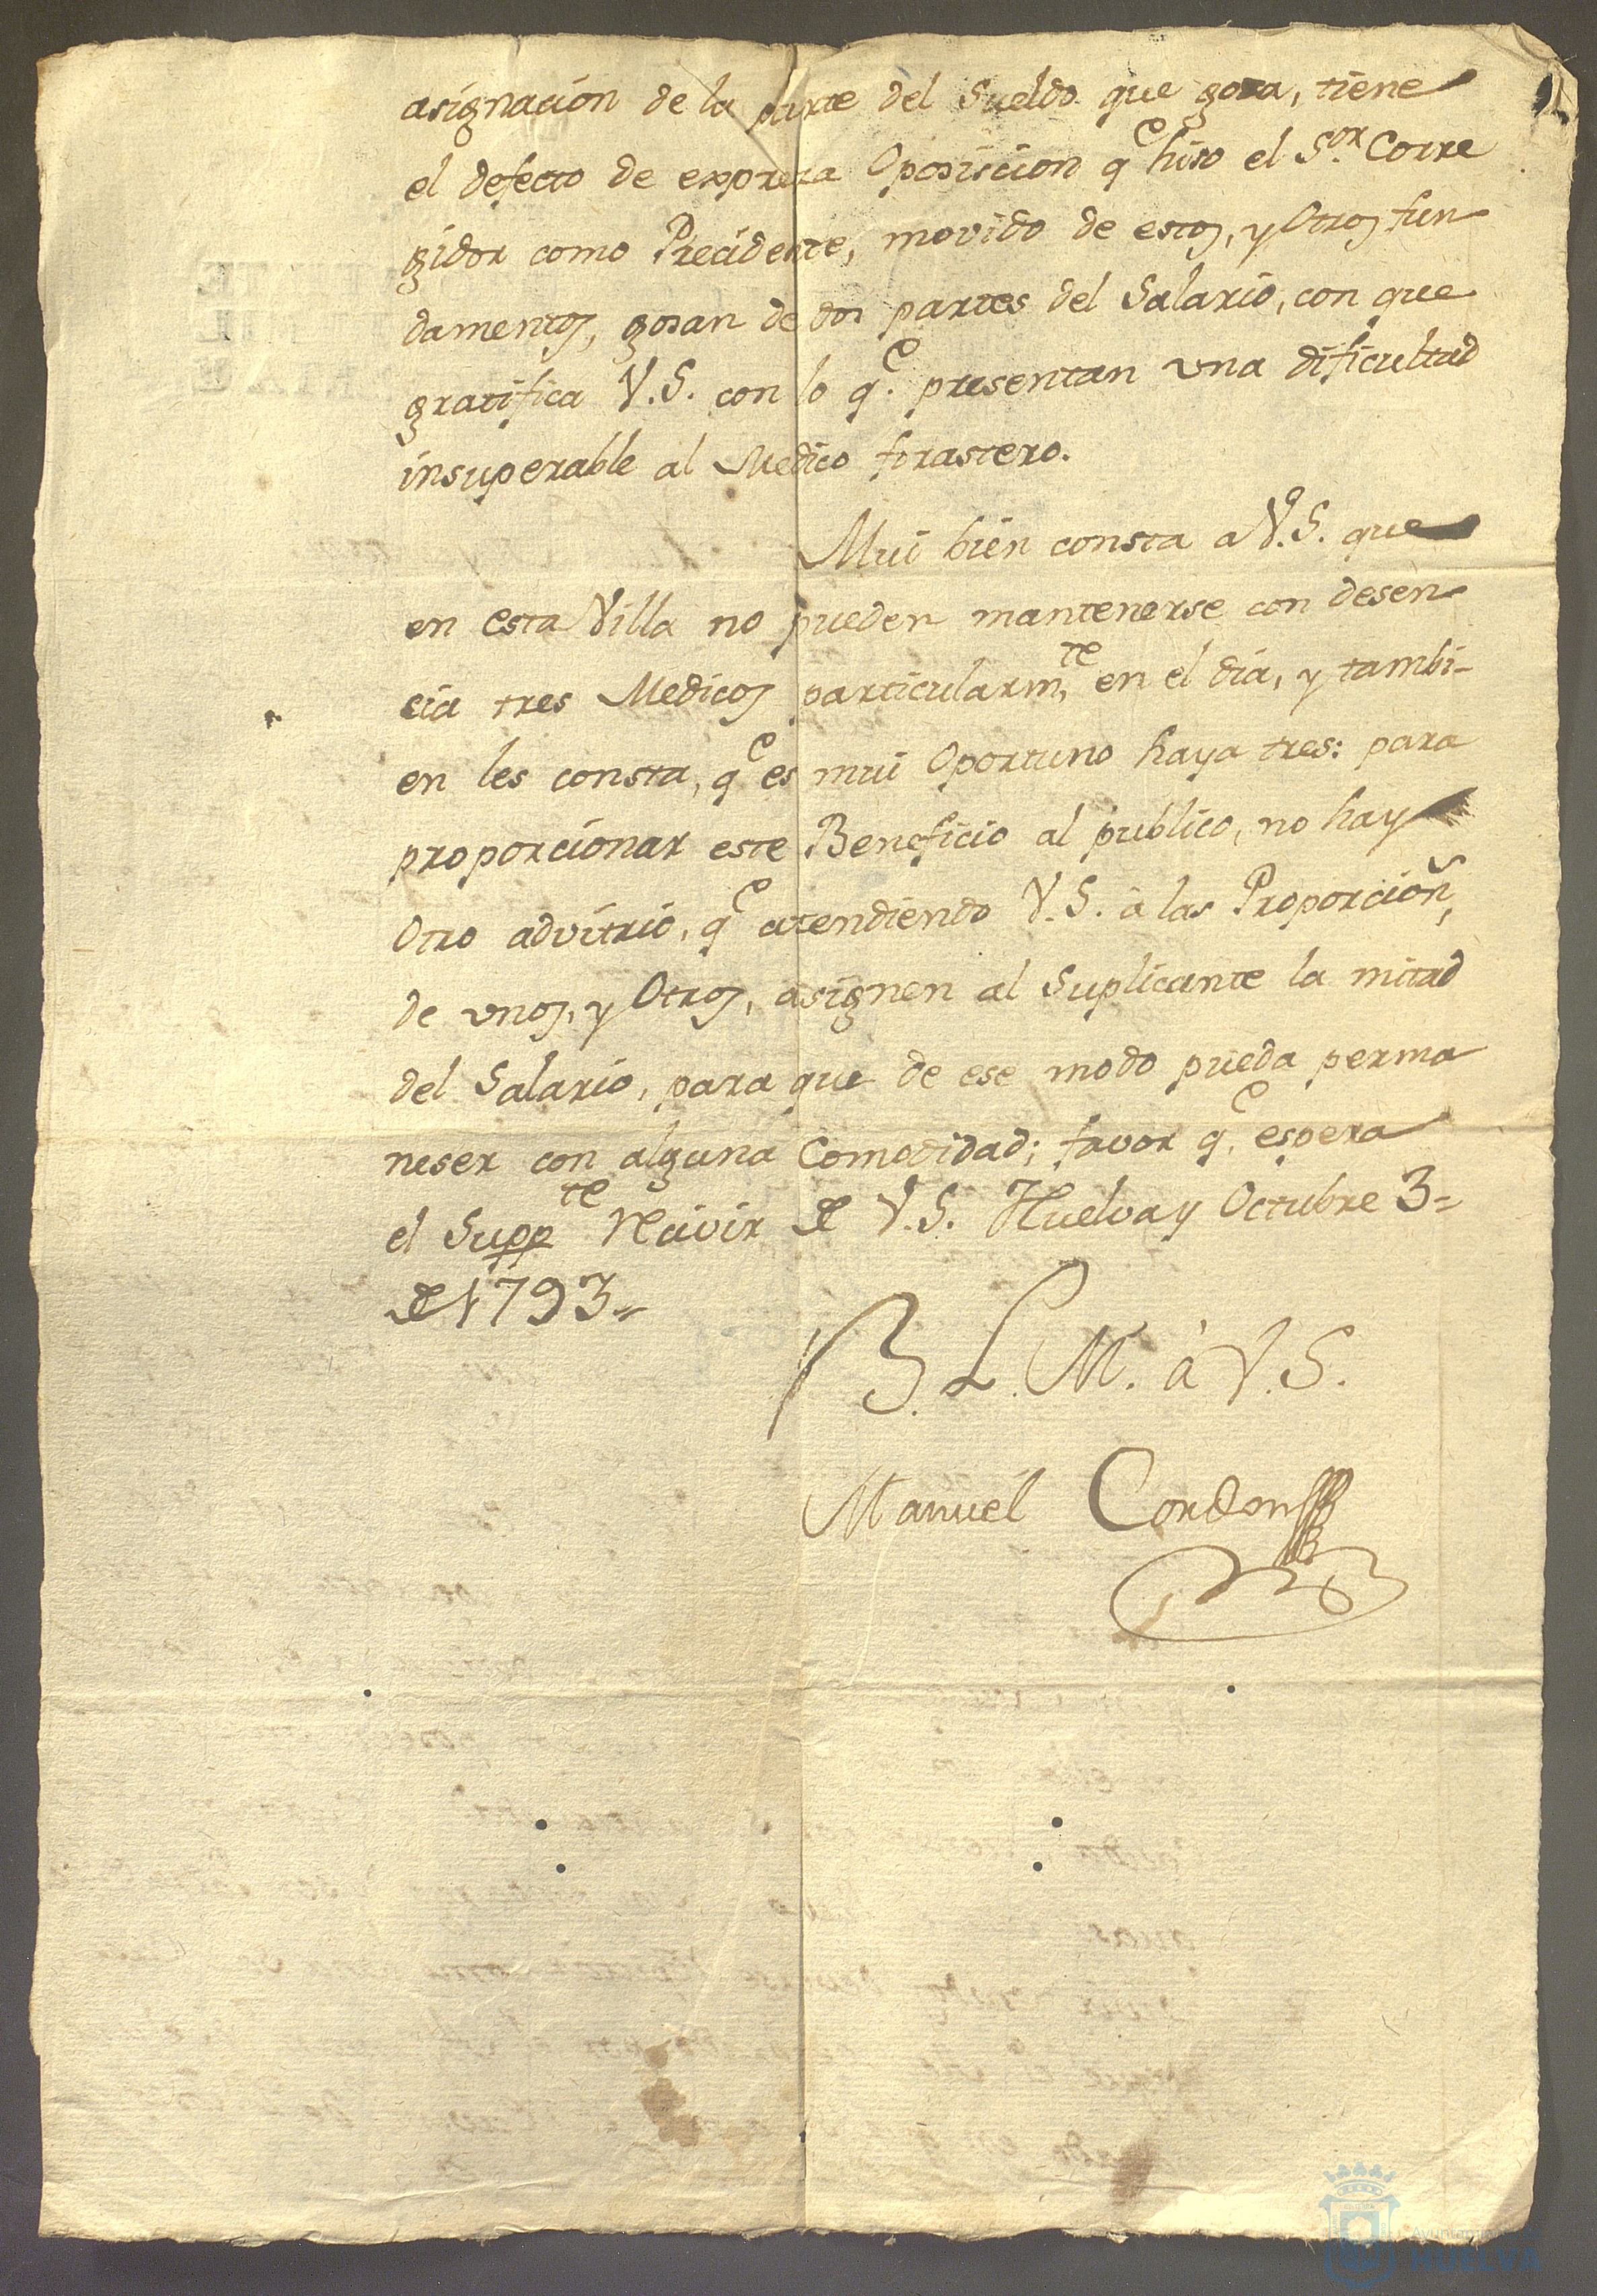 asignacion de la parte del Sueldo que goza, tiene
el defecto de expresa Oposiscion qe. hiso el Sor. Corre
gidor como Precidente, movido de estos, y Otros fun
damentos, gosan de dos partes del Salario, con que
gratifica V.S. con lo qe. presentan una dificultad
insuperable al Medico forastero.
Mui bien consta a V.S. que
en esta Villa no pueden mantenerse con desen
cia tres Medicos particularmte. en el dia, y tambi-
en les consta, qe es mui Oportuno haya tres: para
proporcionar este Beneficio al publico, no hay
Otro advitrio, qe atendiendo V.S. à las Proporcioñ,
de unos, y Otros, asignen al Suplicante la mitad
del Salario, para que de ese modo pueda perma
neser con alguna Comodidad; favor qe. espera
el Suppte Recivir de V.S. Huelva y Octubre 3=
de 1793=
B. L. M. à V.S.
Manuel Cordon
Ayuntamiento
HUELVA